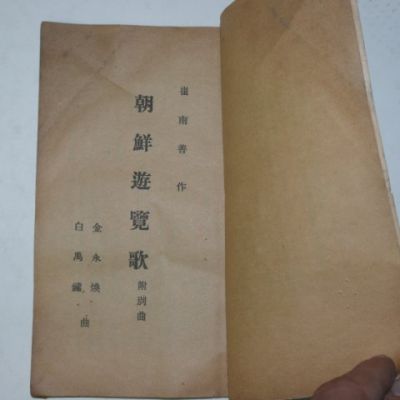 崔南善作
朝鮮遊覽歌 附別曲
金永煥
白禹鏞 曲